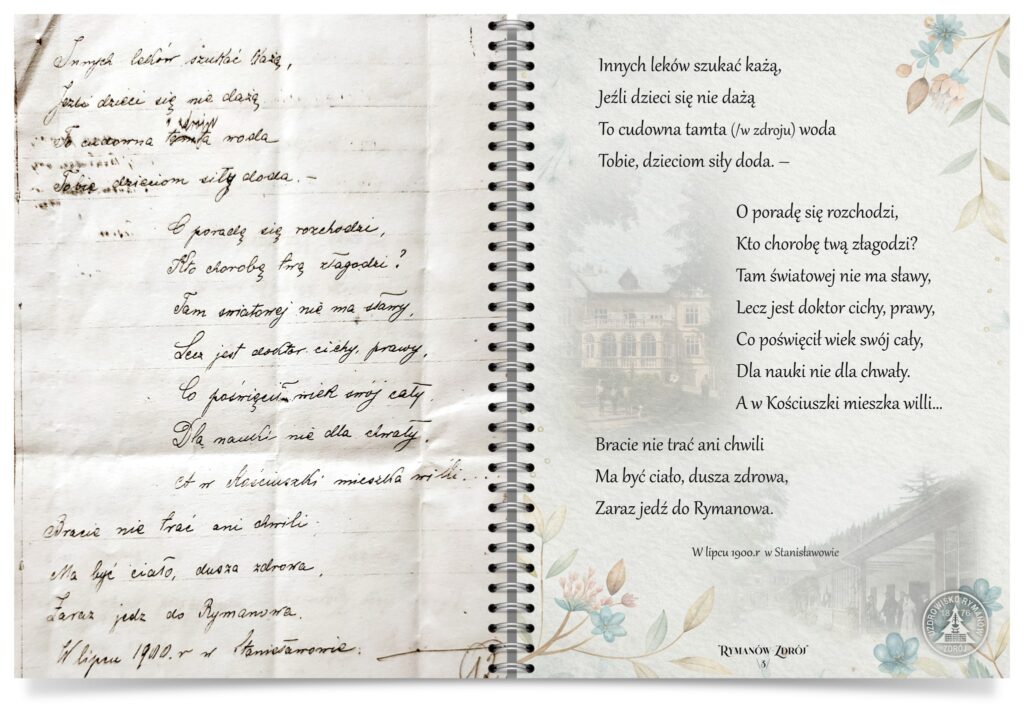 Innych leków szukać każą,
Jeźli dzieci się nie dażą
To cudowna tamta woda
Tobie, dzieciom siły doda. –
O poradę się rozchodzi,
Kto chorobę twą złagodzi?
Tam swiatowej nie ma sławy,
Lecz jest doktor cichy, prawy,
Co poświęcił wiek swój cały.
Dla nauki nie dla chwały.
A w Kościuszki mieszka willi...
Bracie nie trać ani chwili
Ma być ciało, dusza zdrowa,
Zaraz jedz do Rymanowa.
W lipcu 1900.r w Stanisławowie.
Innych leków szukać każą,
Jeźli dzieci się nie dażą
To cudowna tamta (/w zdroju) woda
Tobie, dzieciom siły doda. –
O poradę się rozchodzi,
Kto chorobę twą złagodzi?
Tam światowej nie ma sławy,
Lecz jest doktor cichy, prawy,
Co poświęcił wiek swój cały,
Dla nauki nie dla chwały.
A w Kościuszki mieszka willi...
Bracie nie trać ani chwili
Ma być ciało, dusza zdrowa,
Zaraz jedź do Rymanowa.
W lipcu 1900.r w Stanisławowie
"Rymanów Zdrój"
3
UZDROWISKO RYMANÓW
1876
ZDRÓJ